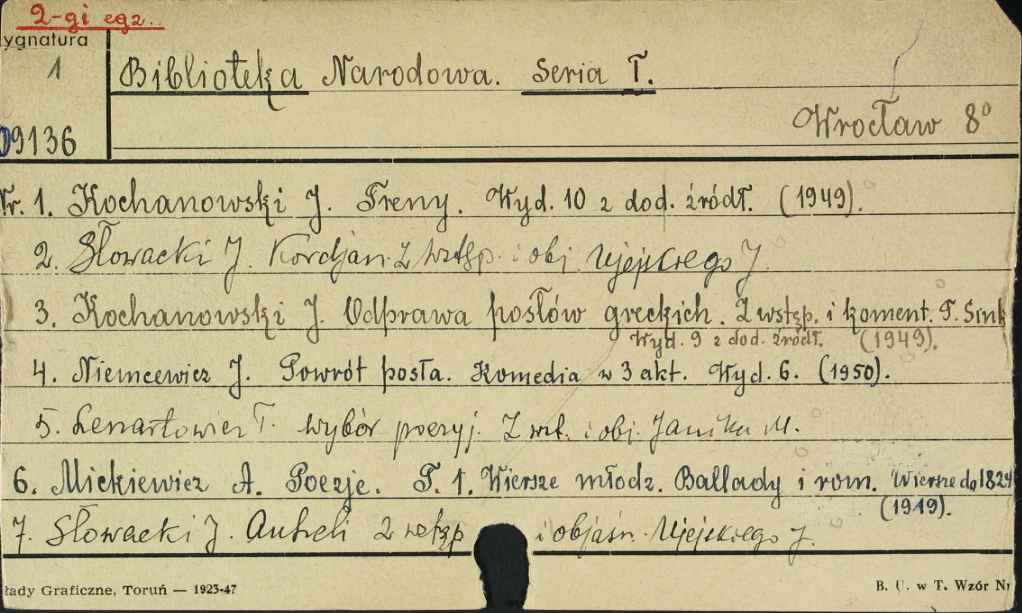 2-gi egz..
ygnatura
1
Biblioteka Narodowa. Seria I.
Wrocław 8°
09136
Nr. 1. Kochanowski J. Treny. Wyd. 10 z dod. źródł. (1949).
2. Słowacki J. Kordjan. Z wstęp. i obj. Ujejskiego J.
3. Kochanowski J. Odprawa posłów greckich. Z wstęp. i koment. T. Sink
Wyd. 9 z dod. źródł. (1949).
4. Niemcewicz J. Powrót posła. Komedia w 3 akt. Wyd. 6. (1950).
5. Lenartowicz T. Wybór poezyj. Z wst. i obj. Janika M.
6. Mickiewicz A. Poezje. T. 1. Wiersze młodz. Ballady i rom. Wiersze do 1824
(1949).
7. Słowacki J. Anheli z wstęp i objaśn. Ujejskiego J.
łady Graficzne, Toruń — 1923-47
B. U. w T. Wzór Nr